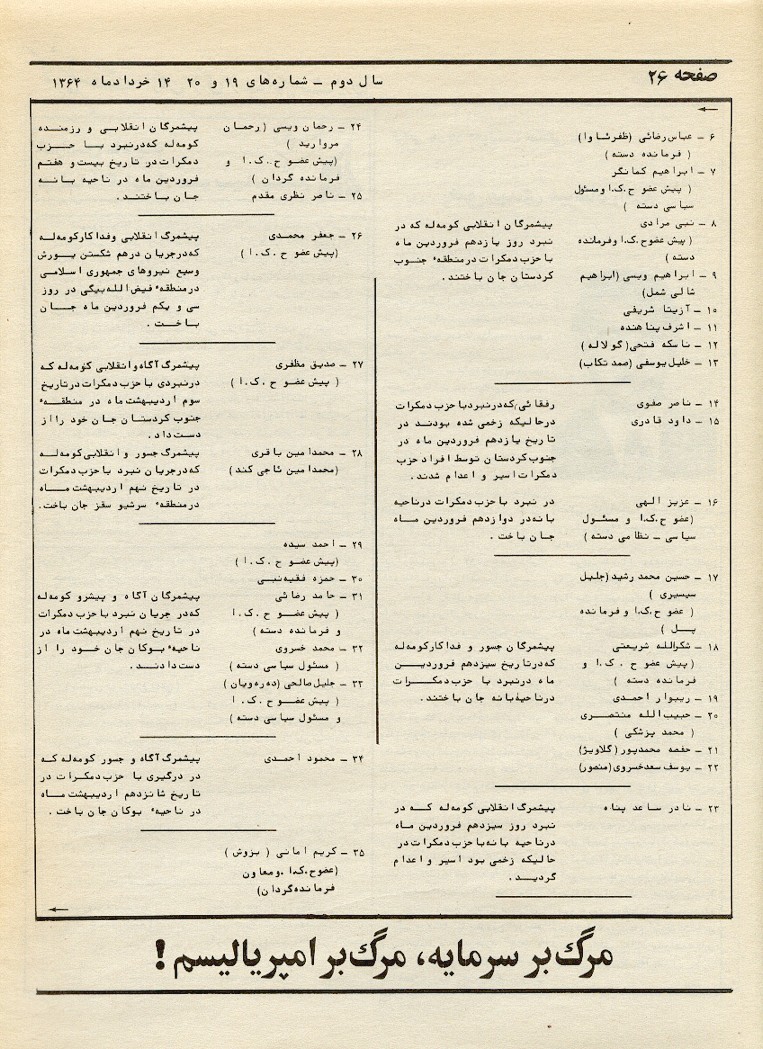 صفحه ۲۶
سال دوم – شماره‌های ۱۹ و ۲۰ ۱۴ خردادماه ۱۳۶۴
۶ – عباس رضائی (ظفرئاوا)
( فرمانده دسته )
۷ – ابراهیم کمانگر
( پیش عضو ح.ک.ا و مسئول
سیاسی دسته )
۸ – نبی مرادی
( پیش عضو ح.ک.ا و فرمانده
دسته )
۹ – ابراهیم ویسی (ابراهیم
شالی شمل)
۱۰ – آزیتا شریفی
۱۱ – اشرف پناهنده
۱۲ – ناسکه فتحی (گولاله )
۱۳ – خلیل یوسفی (صمد تکاب)
پیشمرگان انقلابی کومه‌له که در
نبرد روز یازدهم فروردین ماه
با حزب دمکرات در منطقهٔ جنوب
کردستان جان باختند.
۱۴ – ناصر صفوی
۱۵ – داود قادری
رفقائی که در نبرد با حزب دمکرات
در حالیکه زخمی شده بودند در
تاریخ یازدهم فروردین ماه در
جنوب کردستان توسط افراد حزب
دمکرات اسیر و اعدام شدند.
۱۶ – عزیز الهی
(عضو ح.ک.ا و مسئول
سیاسی – نظامی دسته )
در نبرد با حزب دمکرات در ناحیه
بانه در دوازدهم فروردین ماه
جان باخت .
۱۷ – حسین محمد رشید (جلیل
سیسیری )
( عضو ح.ک.ا و فرمانده
پل )
۱۸ – شکرالله شریعتی
(پیش عضو ح . ک.ا و
فرمانده دسته )
۱۹ – ریبوار احمدی
۲۰ – حبیب الله منتصری
( محمد پزشکی )
۲۱ – حفصه محمدپور (گلاویژ)
۲۲ – یوسف سعدخسروی (منصور)
پیشمرگان جسور و فداکار کومه‌له
که در تاریخ سیزدهم فروردین
ماه در نبرد با حزب دمکرات
در ناحیه بانه جان باختند.
۲۳ – نادر ساعد پناه
پیشمرگ انقلابی کومه‌له که در
نبرد روز سیزدهم فروردین ماه
در ناحیه بانه با حزب دمکرات در
حالیکه زخمی بود اسیر و اعدام
گردید .
۲۴ – رحمان ویسی (رحمان
مروارید )
(پیش عضو ح.ک.ا و
فرمانده گردان )
۲۵ – ناصر نظری مقدم
پیشمرگان انقلابی و رزمنده
کومه‌له که در نبرد با حزب
دمکرات در تاریخ بیست و هفتم
فروردین ماه در ناحیه بانه
جان باختند .
۲۶ – جعفر محمدی
(پیش عضو ح .ک.ا )
پیشمرگ انقلابی و فداکار کومه‌له
که در جریان درهم شکستن یورش
وسیع نیروهای جمهوری اسلامی
در منطقهٔ فیض‌الله‌بیگی در روز
سی و یکم فروردین ماه جان
باخت .
۲۷ – صدیق مظفری
( پیش عضو ح .ک.ا )
پیشمرگ آگاه و انقلابی کومه‌له که
در نبردی با حزب دمکرات در تاریخ
سوم اردیبهشت ماه در منطقهٔ
جنوب کردستان جان خود را از
دست داد .
۲۸ – محمدامین باقری
(محمدامین ئاجی کند)
پیشمرگ جسور و انقلابی کومه‌له
که در جریان نبرد با حزب دمکرات
در تاریخ نهم اردیبهشت ماه
در منطقهٔ سرشیو سقز جان باخت.
۲۹ – احمد سیده
(پیش عضو ح .ک.ا )
۳۰ – حمزه فقیه‌نبی
۳۱ – حامد رضائی
( پیش عضو ح .ک.ا
و فرمانده دسته )
۳۲ – محمد خسروی
( مسئول سیاسی دسته )
۳۳ – جلیل صالحی (ده‌ره‌ویان)
( پیش عضو ح .ک. ا
و مسئول سیاسی دسته )
پیشمرگان آگاه و پیشرو کومه‌له
که در جریان نبرد با حزب دمکرات
در تاریخ نهم اردیبهشت ماه در
ناحیهٔ بوکان جان خود را از
دست دادند .
۳۴ – محمود احمدی
پیشمرگ آگاه و جسور کومه‌له که
در درگیری با حزب دمکرات در
تاریخ شانزدهم اردیبهشت ماه
در ناحیهٔ بوکان جان باخت .
۳۵ – کریم امانی ( بزوش )
(عضو ح.ک.ا .و معاون
فرمانده گردان)
مرگ بر سرمایه، مرگ بر امپریالیسم !